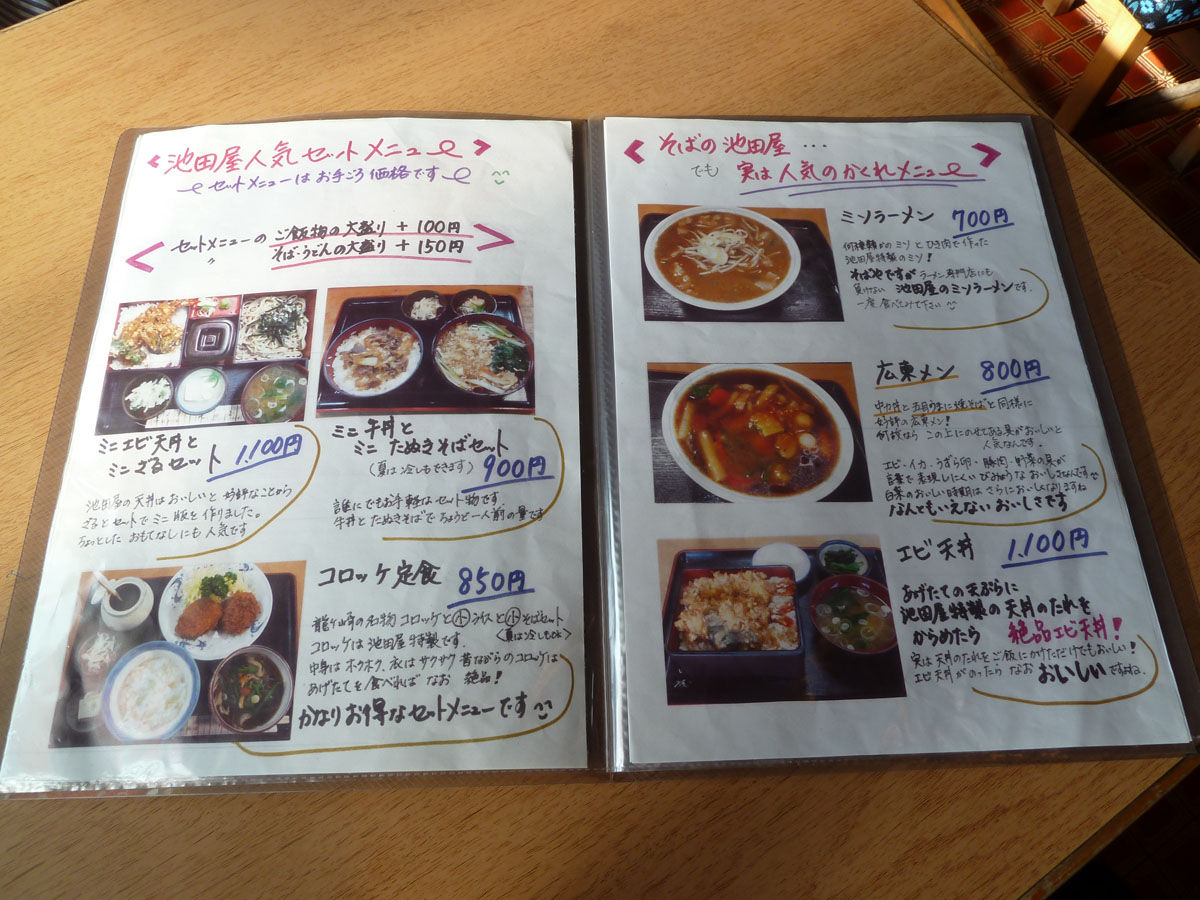 池田屋人気セットメニュー
セットメニューはお手ごろ価格です
セットメニューの ご飯物の大盛り + 100円
〃 そば・うどんの大盛り + 150円
ミニエビ天丼と
ミニざるセット 1,100円
池田屋の天丼はおいしいと好評なことから
ざるとセットでミニ版を作りました。
ちょっとしたおもてなしにも人気です
ミニ牛丼と
ミニたぬきそばセット
(夏は冷しもできます) 900円
誰にでもお手軽なセット物です。
牛丼とたぬきそばでちょうど一人前の量です
コロッケ定食 850円
龍ヶ崎の名物コロッケと小
と小そばセット
コロッケは池田屋特製です。
<夏は冷しもOK>
中身はホクホク、衣はサクサク昔ながらのコロッケは
あげたてを食べればなお絶品!
かなりお得なセットメニューです
そばの池田屋 ...
でも 実は人気のかくれメニュー
ミソラーメン 700円
何種類かのミソとひき肉で作った
池田屋特製のミソ!
そば屋ですがラーメン専門店にも
負けない 池田屋のミソラーメンです。
一度食べてみて下さい
広東メン 800円
中力丼と五目うまに焼そばと同様に
好評の広東メン!
何故なら この上にのせてある具がおいしいと
人気なんです。
エビ・イカ・うずら卵・豚肉・野菜の具が
言葉で表現しにくいびみょうなおいしさなんです
白菜のおいしい時期はさらにおいしくなりますね
なんともいえないおいしさです
エビ天丼 1,100円
あげたての天ぷらに
池田屋特製の天丼のたれを
からめたら 絶品エビ天丼!
実は天丼のたれをご飯にかけただけでもおいしい!
エビ天丼がのったらなお おいしいですよね。